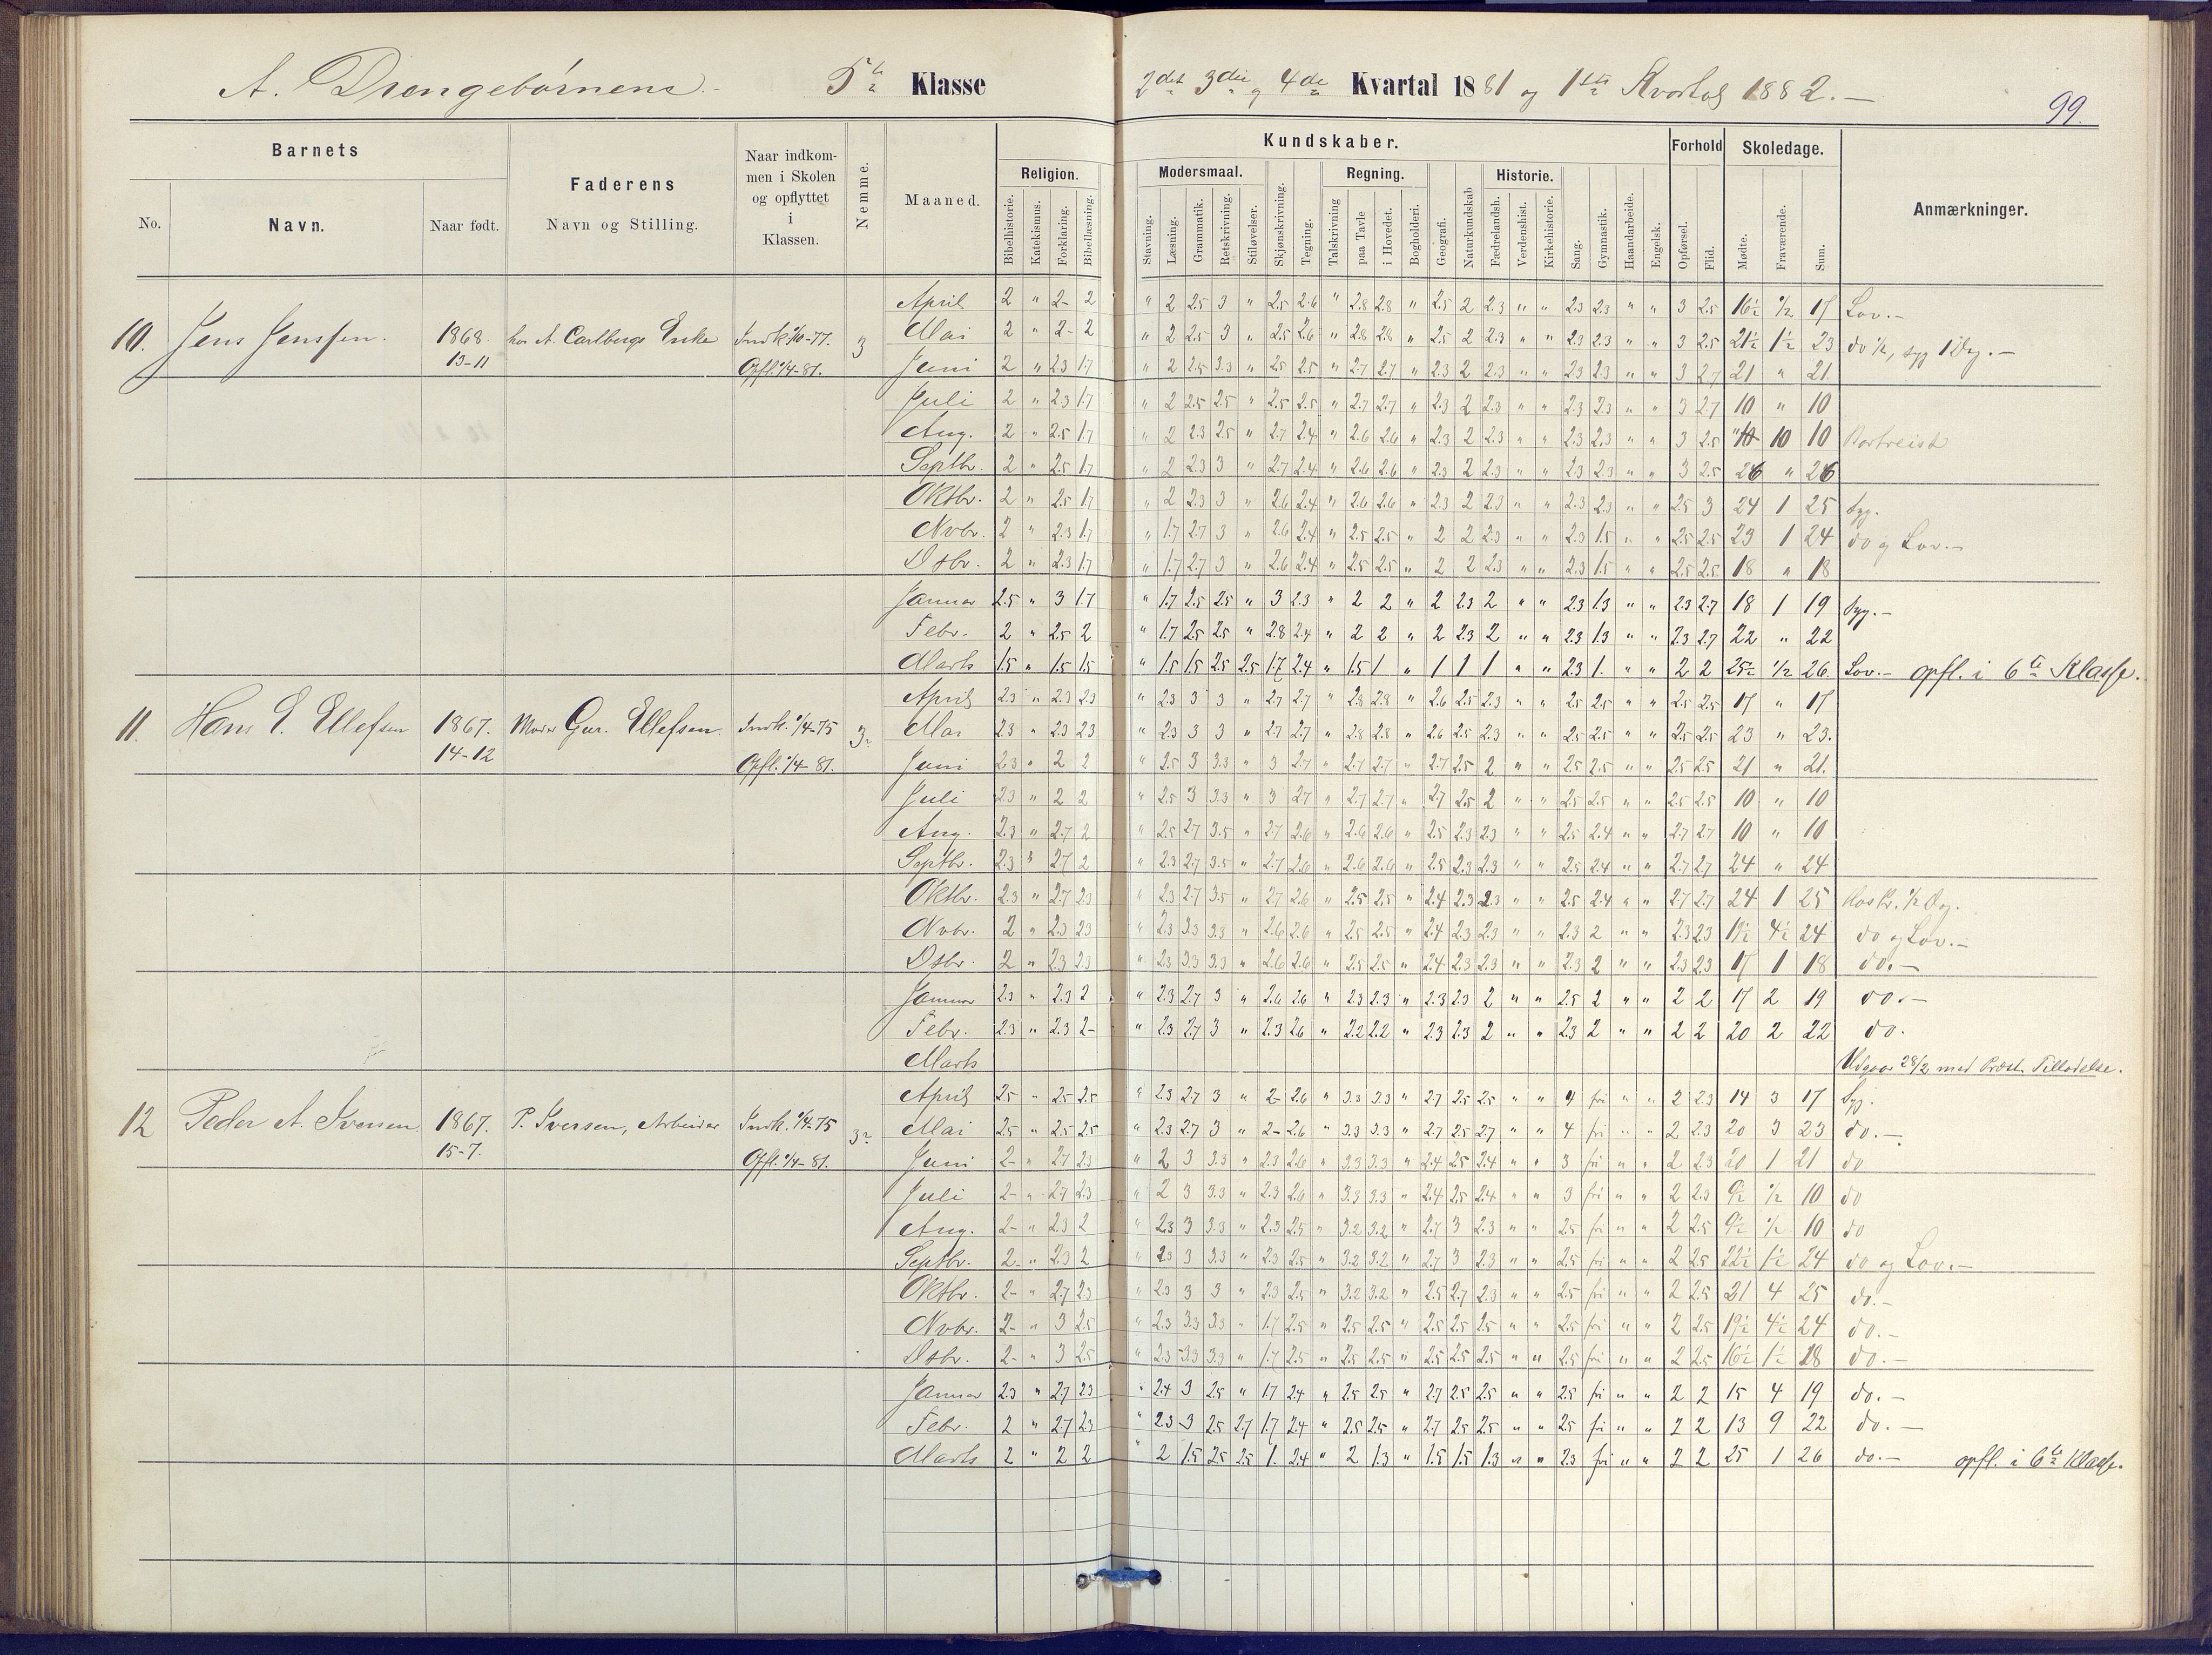 A. Drengebørnene. 5te Klasse 2det 3die og 4de Kvartal 1881 og 1ste Kvartal 1882.
99.
Barnets
No.
Navn.
Naar født.
Faderens
Navn og Stilling.
Naar indkom-
men i Skolen
og opflyttet
i
Klassen.
Nemme.
Maaned.
Kundskaber.
Religion.
Bibelhistorie.
Katekismus.
Forklaring.
Bibellæsning.
Modersmaal.
Stavning.
Læsning.
Grammatik.
Retskrivning.
Stiløvelser.
Skjønskrivning.
Tegning.
Regning.
Talskrivning
paa Tavle
i Hovedet.
Bogholderi.
Geografi.
Naturkundskab
Historie.
Fædrelandsh.
Verdenshist.
Kirkehistorie.
Sang.
Gymnastik.
Haandarbeide.
Engelsk.
Forhold
Opførsel.
Flid.
Skoledage.
Mødte.
Fraværende.
Sum.
Anmærkninger.
10. Jens Jenssen. 1868. 13-11 hos A. Carlbergs Enke 3
Opfl. 1/4-81.
April 2 " 2 2 " 2 2.5 3 " 2.5 2.6 " 2.8 2.8 " 2.5 2 2.3 " " 2.3 2.3 " " 3 2.5 16½ ½ 17 Lov.-
Mai 2 " 2 2 " 2 2.5 3 " 2.5 2.6 " 2.8 2.8 " 2.5 2 2.3 " " 2.3 2.3 " " 3 2.5 21½ 1½ 23 do ½, syg 1 Dg.-
Juni 2 " 2.3 1.7 " 2 2.5 3.3 " 2.5 2.5 " 2.7 2.7 " 2.3 2 2.3 " " 2.3 2.3 " " 3 2.7 21 " 21.
Juli 2 " 2.3 1.7 " 2 2.5 2.5 " 2.5 2.5 " 2.7 2.7 " 2.3 2 2.3 " " 2.3 2.3 " " 3 2.7 10 " 10
Aug. 2 " 2.5 1.7 " 2 2.3 2.5 " 2.7 2.4 " 2.6 2.6 " 2.3 2 2.3 " " 2.3 2.3 " " 3 2.5 " 10 10 Bortreist
Septbr. 2 " 2.5 1.7 " 2 2.3 3 " 2.7 2.4 " 2.6 2.6 " 2.3 2 2.3 " " 2.3 2.3 " " 3 2.5 26 " 26
Oktbr. 2 " 2.5 1.7 " 2 2.3 3 " 2.6 2.4 " 2.6 2.6 " 2.3 2 2.3 " " 2.3 2.3 " " 2.5 3 24 1 25 Syg.
Nvbr. 2 " 2.3 1.7 " 1.7 2.7 3 " 2.6 2.4 " 2.5 2.5 " 2 2 2.3 " " 2.3 1.5 " " 2.5 2.5 23 1 24 do og Lov.-
Dsbr. 2 " 2.3 1.7 " 1.7 2.7 3 " 2.6 2.4 " 2.5 2.5 " 2 2 2.3 " " 2.3 1.5 " " 2.5 2.5 18 " 18
Januar 2.5 " 3 1.7 " 1.7 2.5 2.5 " 3 2.3 " 2 2 " 2 2.3 2 " " 2.3 1.3 " " 2.3 2.7 18 1 19 Syg.-
Febr. 2 " 2.5 2 " 1.7 2.5 2.5 " 2.8 2.4 " 2 2 " 2 2.3 2 " " 2.3 1.3 " " 2.3 2.7 22 " 22
Marts 1.5 " 1.5 1.5 " 1.5 1.5 2.5 2.5 1.7 2.4 " 1.5 1 " 1 1 1 " " 2.3 1. " " 2 2 25½ ½ 26 Lov.- opfl. i 6te Klasse.
11. Hans E. Ellefsen 1867. 14-12 Moder Gur. Ellefsen. Indk. 1/4-75 3
Opfl. 1/4-81.
April 2.3 " 2.3 2.3 " 2.3 3 3 " 2.7 2.7 " 2.8 2.8 " 2.6 2.5 2.3 " " 2.5 2.5 " " 2.5 2.5 17 " 17
Mai 2.3 " 2.3 2.3 " 2.3 3 3 " 2.7 2.7 " 2.8 2.8 " 2.6 2.5 2.3 " " 2.5 2.5 " " 2.5 2.5 23 " 23.
Juni 2.3 " 2 2 " 2.5 3 3.3 " 3 2.7 " 2.7 2.7 " 2.7 2.5 2 " " 2.5 2.5 " " 2.5 2.5 21 " 21.
Juli 2.3 " 2 2 " 2.5 3 3.3 " 3 2.7 " 2.7 2.7 " 2.7 2.5 2 " " 2.5 2.5 " " 2.5 2.5 10 " 10
Aug. 2.3 " 2.7 2 " 2.5 2.7 3.5 " 2.7 2.6 " 2.6 2.6 " 2.5 2.3 2.3 " " 2.5 2.4 " " 2.7 2.7 10 " 10
Septbr. 2.3 " 2.7 2 " 2.3 2.7 3.5 " 2.7 2.6 " 2.6 2.6 " 2.5 2.3 2.3 " " 2.5 2.4 " " 2.7 2.7 24 " 24
Oktbr. 2.3 " 2.7 2.3 " 2.3 2.7 3.5 " 2.7 2.6 " 2.5 2.5 " 2.4 2.3 2.3 " " 2.5 2.4 " " 2.7 2.7 24 1 25
Nvbr. 2 " 2.3 2.3 " 2.3 3.3 3.3 " 2.6 2.6 " 2.5 2.5 " 2.4 2.3 2.3 " " 2.3 2 " " 2.3 2.3 19½ 4½ 24 do og Lov.-
Dsbr. 2 " 2.3 2.3 " 2.3 3.3 3.3 " 2.6 2.6 " 2.5 2.5 " 2.4 2.3 2.3 " " 2.3 2 " " 2.3 2.3 17 1 18 do.-
Januar 2.3 " 2.3 2 " 2.3 2.7 3 " 2.6 2.6 " 2.3 2.3 " 2.3 2.3 2 " " 2.5 2 " " 2 2 17 2 19 do.-
Febr. 2.3 " 2.3 2 " 2.3 2.7 3 " 2.3 2.6 " 2.2 2.2 " 2.3 2.3 2 " " 2.3 2 " " 2 2 20 2 22 do.
Marts Udgaar 28/2 med Præst. Tilladelse.
12 Peder A. Iversen 1867. 15-7. P. Iversen, Arbeider Indk. 1/4-75 3
Opfl. 1/4-81.
April 2.5 " 2.5 2.5 " 2.3 2.7 3 " 2 2.6 " 3.3 3.3 " 2.7 2.5 2.5 " " 4 fri " " 2 2.3 14 3 17 Syg.
Mai 2.5 " 2.5 2.5 " 2.3 2.7 3 " 2 2.6 " 3.3 3.3 " 2.7 2.5 2.7 " " 4 fri " " 2 2.3 20 3 23 do.-
Juni 2 " 2.7 2.3 " 2 3 3.3 " 2.3 2.6 " 3.3 3.3 " 2.4 2.5 2.4 " " 3 fri " " 2 2.3 20 1 21 do
Juli 2 " 2.7 2.3 " 2 3 3.3 " 2.3 2.6 " 3.3 3.3 " 2.4 2.5 2.4 " " 3 fri " " 2 2.3 9½ ½ 10 do
Aug. 2 " 2.3 2 " 2.3 3 3.3 " 2.3 2.5 " 3.2 3.2 " 2.7 3 2.3 " " 2.5 fri " " 2 2.5 9½ ½ 10 do
Septbr. 2 " 2.3 2 " 2.3 3 3.3 " 2.3 2.5 " 3.2 3.2 " 2.7 3 2.3 " " 2.5 fri " " 2 2.5 22½ 1½ 24 do og Lov.-
Oktbr. 2 " 2.7 2.3 " 2.3 3 3 " 2.3 2.5 " 3.2 3.2 " 2.5 2.7 2.3 " " 2.5 fri " " 2 2.5 21 4 25 do.-
Nvbr. 2 " 3 2.5 " 2.3 3.3 3.3 " 1.7 2.5 " 2.5 2.5 " 2.5 2.5 2.5 " " 2.5 fri " " 2 2.5 19½ 4½ 24 do.-
Dsbr. 2 " 3 2.5 " 2.3 3.3 3.3 " 1.7 2.5 " 2.5 2.5 " 2.5 2.5 2.5 " " 2.5 fri " " 2 2.5 16½ 1½ 18 do.-
Januar 2.3 " 2.7 2.3 " 2.4 3 2.5 " 1.7 2.4 " 2.5 2.5 " 2.7 2.5 2.5 " " 2.5 fri " " 2 2 15 4 19 do.-
Febr. 2 " 2.7 2.3 " 2.3 3 2.5 2.7 1.7 2.4 " 2.5 2.5 " 2.7 2.5 2.5 " " 2.5 fri " " 2 2 13 9 22 do.-
Marts 2 " 2 2 " 2 1.5 2.5 2.5 1. 2.4 " 2 1.3 " 1.5 1.5 1.3 " " 2.3 fri " " 2 2 25 1 26 do.- opfl. i 6te Klasse.